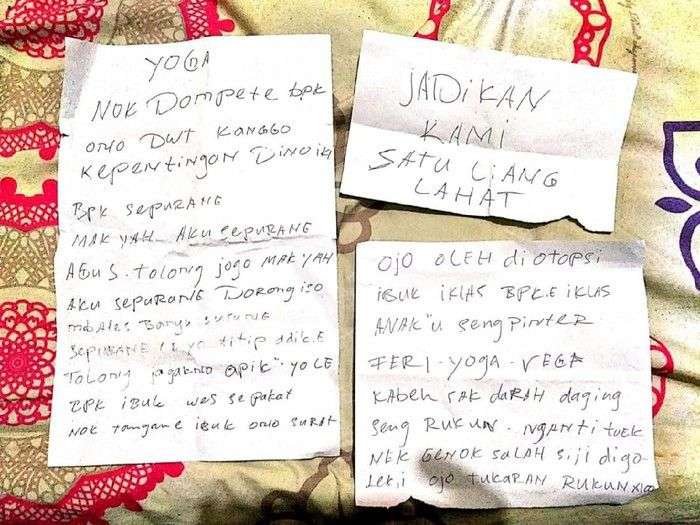 YOGA
NOK DOMPETE bpk
ONO DWT KANGGO
KEPENTINGAN DINO iki
BPK SEPURANE
MAK YAH AKU SEPURANE
AGUS. tolong jogo MAK YAH
AKU SEPURANE DORONG ISO
mbALES Banyu SUSUNE
SEPURANE titip Adik.E
TOLONG jagakno APIK" YO LE
BPK iBUK WES SEPAKAT
NOK TANGANE iBUK ONO SURAT
JADIKAN
KAMI
SATU LIANG
LAHAT
OJO OLEH di OTOPSI
iBUK iKLAS BPK.E iKLAS
ANAK"U SENG PiNTER
FERI - YOGA - VEGA
KABEH SAK DARAH DAGING
SENG RUKUN - NGANTI TUEK
NEK GENOK SALAH SiJi diGO
LEKi OJO TUKARAN RUKUN